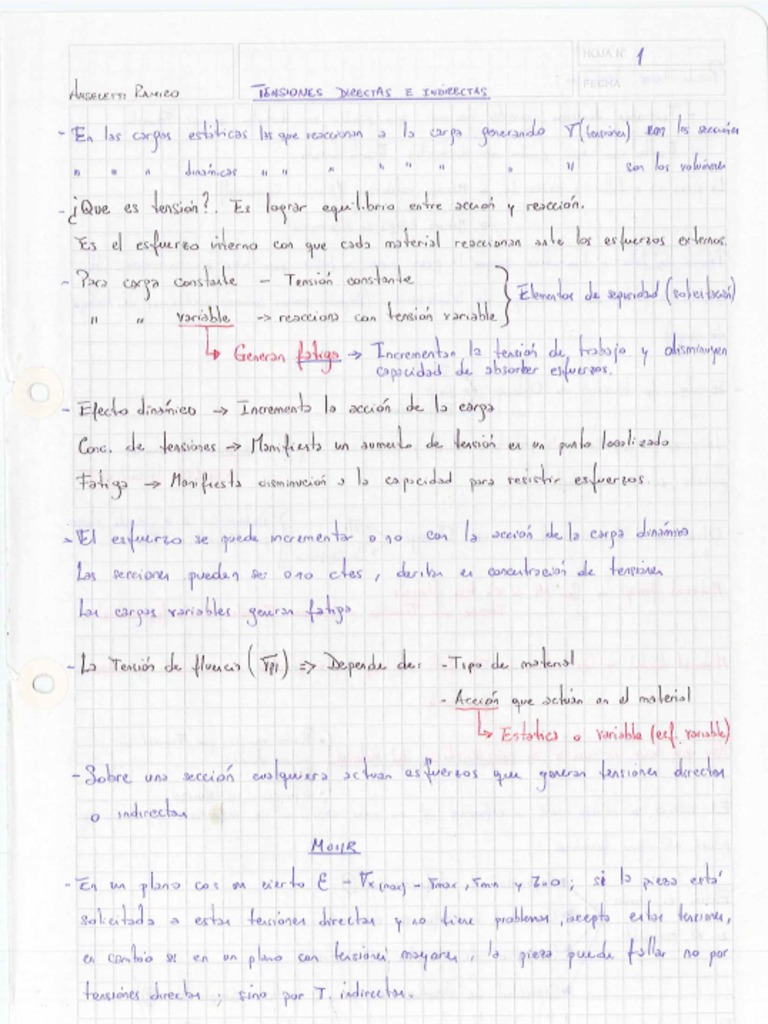 HOJA Nº 1
FECHA
ANGELETTI RAMIRO
TENSIONES DIRECTAS E INDIRECTAS
- En las cargas estáticas las que reaccionan a la carga generando σ (tensiones) son las secciones
" " " dinámicas " " " " " " " " son los volúmenes
- ¿Que es tensión?. Es lograr equilibrio entre acción y reacción.
Es el esfuerzo interno con que cada material reaccionan ante los esfuerzos externos.
- Para carga constante - Tensión constante
" " variable -> reacciona con tensión variable } Elementos de seguridad (solicitación)
↳ Generan fatiga → Incrementan la tensión de trabajo y disminuyen
capacidad de absorber esfuerzos.
- Efecto dinámico → Incrementa la acción de la carga
Conc. de tensiones → Manifiesta un aumento de tensión en un punto localizado
Fatiga → Manifiesta disminución a la capacidad para resistir esfuerzos.
- El esfuerzo se puede incrementar o no con la acción de la carga dinámica
Las secciones pueden ser o no ctes, deriba en concentración de tensiones
Las cargas variables generan fatiga
- La Tensión de fluencia (σfl) => Depende de: - Tipo de material
- Acción que actúan en el material
↳ Estática o variable (ecf. variable)
- Sobre una sección cualquiera actuan esfuerzos que generan tensiones directas
o indirectas
MOHR
- En un plano con un cierto - σx(max) - σmax, σmin y τ=0; si la pieza está
solicitada a estas tensiones directas y no tiene problemas, acepta estas tensiones,
en cambio si en un plano con tensiones mayores, la pieza puede fallar no por
tensiones directas; sino por T. indirectas.